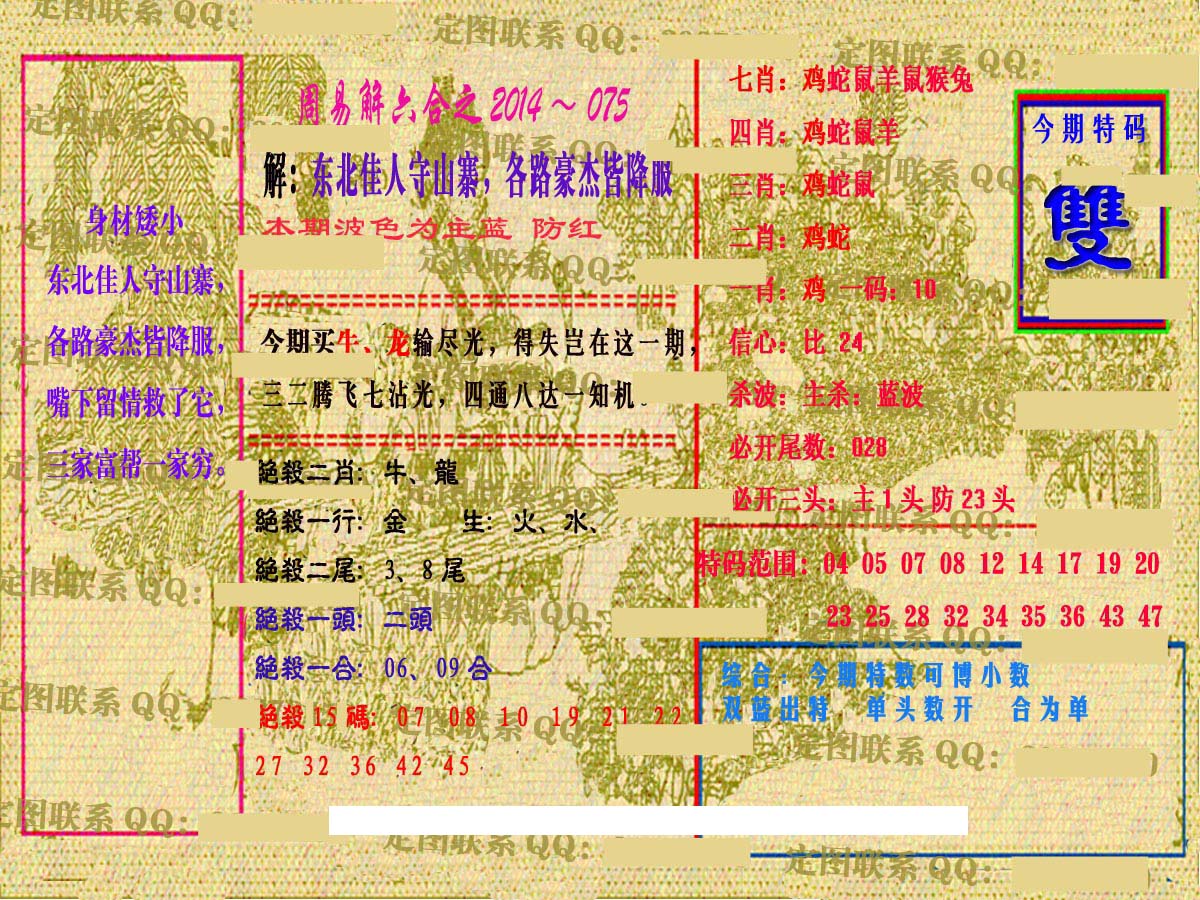 周易解六合之 2014～075
解：东北佳人守山寨，各路豪杰皆降服
本期波色为主蓝 防红
身材矮小
东北佳人守山寨，
各路豪杰皆降服，
嘴下留情救了它，
三家富帮一家穷。
今期买牛、龙输尽光，得失岂在这一期，
三二腾飞七沾光，四通八达一知机。
絕殺二肖：牛、龍
絕殺一行：金 生：火、水、
絕殺二尾：3、8 尾
絕殺一頭：二頭
絕殺一合：06、09 合
絕殺 15 碼：07 08 10 19 21 22
27 32 36 42 45
七肖：鸡蛇鼠羊鼠猴兔
四肖：鸡蛇鼠羊
三肖：鸡蛇鼠
二肖：鸡蛇
一肖：鸡 一码：10
信心：比 24
杀波：主杀：蓝波
必开尾数：028
必开三头：主 1 头 防 23 头
今期特码
雙
特码范围：04 05 07 08 12 14 17 19 20
23 25 28 32 34 35 36 43 47
综合：今期特数可博小数
双蓝出特 单头数开 合为单
定图联系 QQ：
定图联系 QQ：
定图联系 QQ：
定图联系 QQ：
定图联系 QQ：
定图联系 QQ：
定图联系 QQ：
定图联系 QQ：
定图联系 QQ：
定图联系 QQ：
定图联系 QQ：